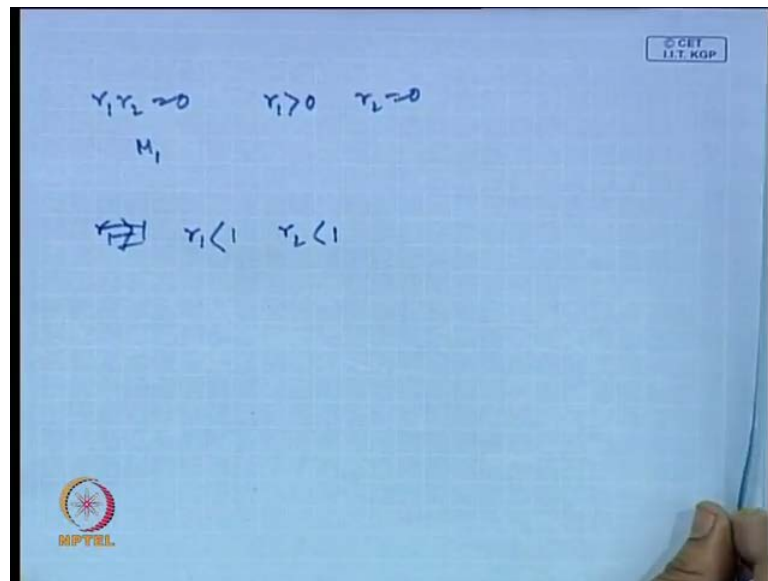 © CET
I.I.T. KGP
r₁r₂ = 0 r₁ > 0 r₂ = 0
M₁
r₁ < 1 r₂ < 1
NPTEL